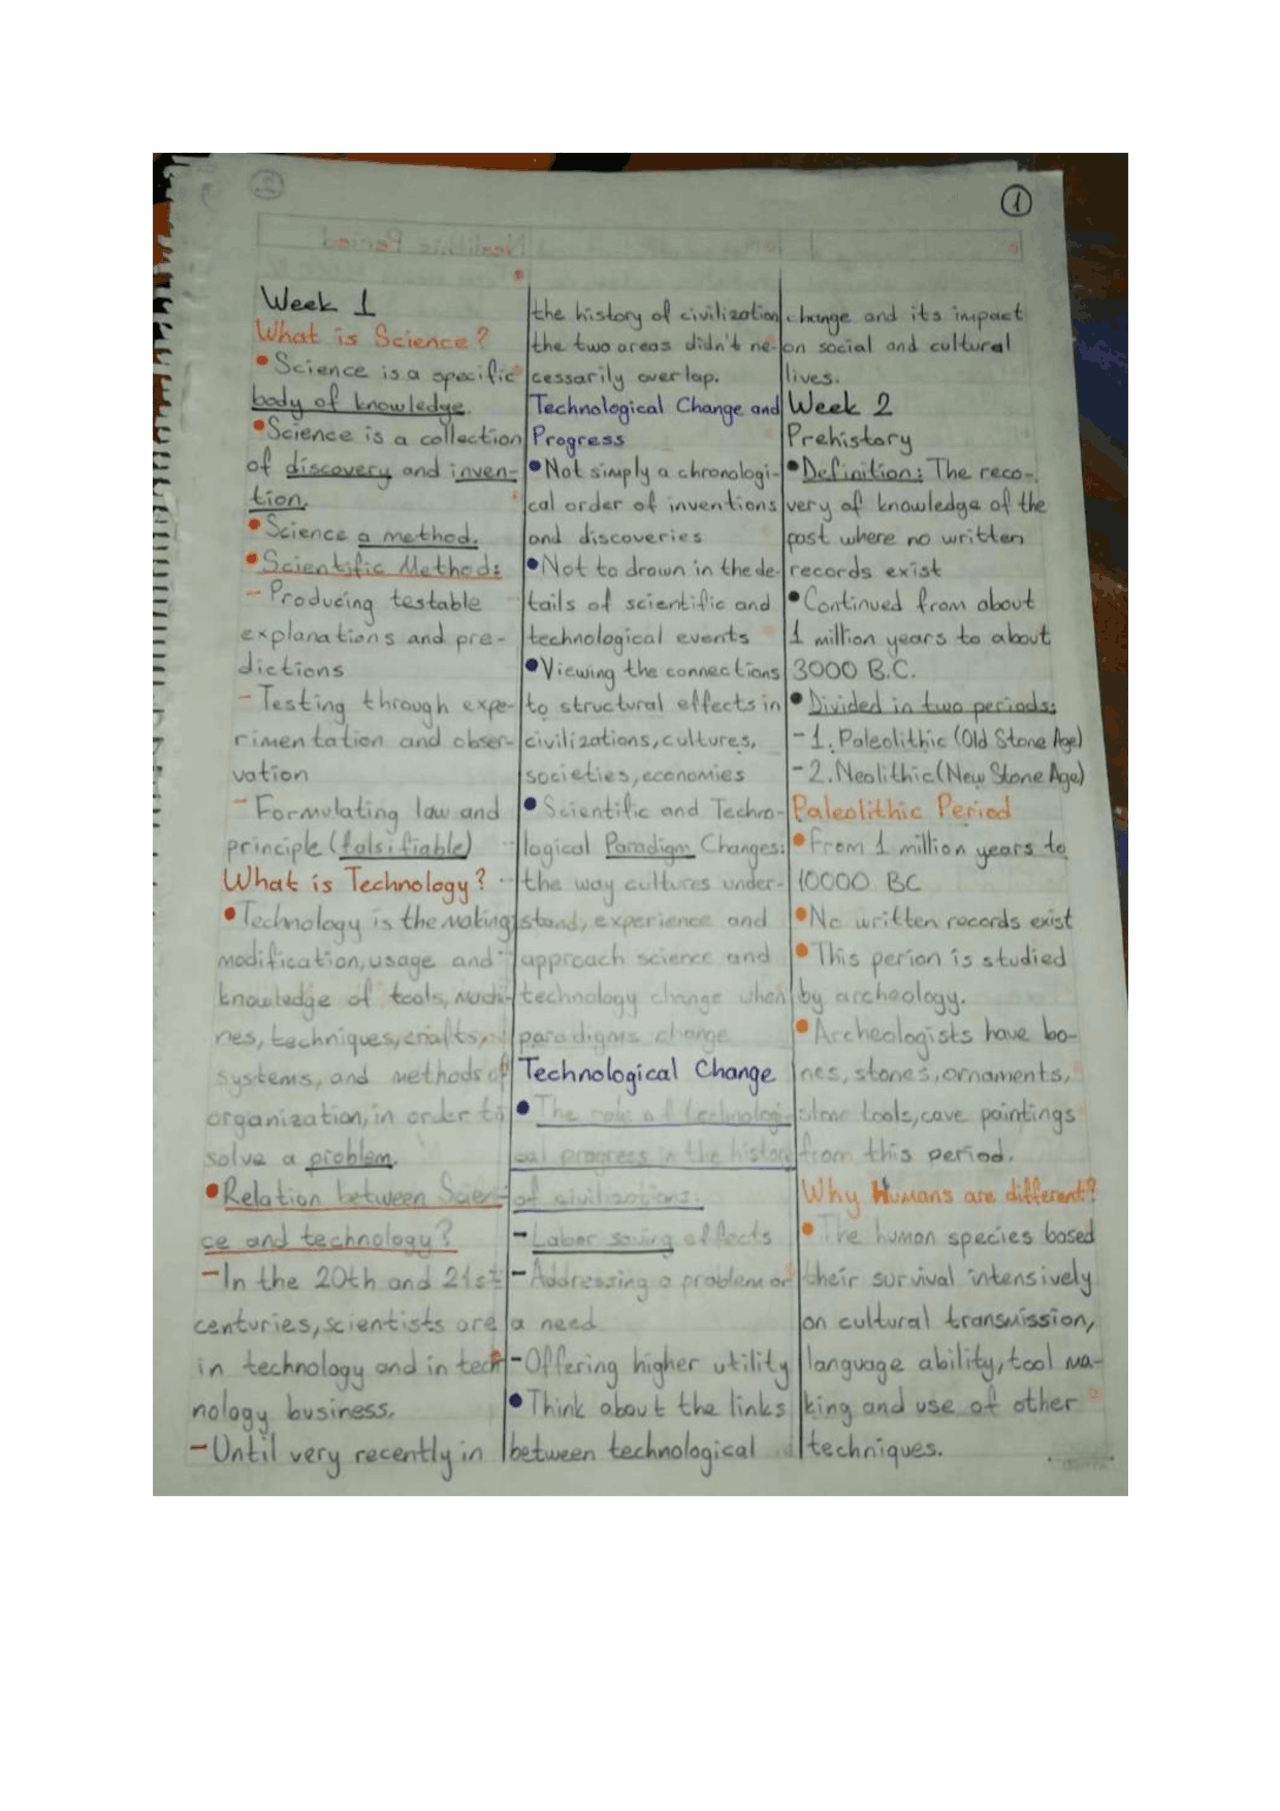 1
Week 1
What is Science?
•Science is a specific
body of knowledge.
•Science is a collection
of discovery and inven-
tion.
•Science a method.
•Scientific Method:
-Producing testable
explanations and pre-
dictions
-Testing through expe-
rimentation and obser-
vation
-Formulating law and
principle (falsifiable)
What is Technology?
•Technology is the making
modification, usage and
knowledge of tools, machi-
nes, techniques, crafts,
systems, and methods of
organization, in order to
solve a problem.
•Relation between Scien-
ce and technology?
-In the 20th and 21st
centuries, scientists are
in technology and in tech
nology business.
-Until very recently in
the history of civilization
the two areas didn't ne-
cessarily overlap.
Technological Change and
Progress
•Not simply a chronologi-
cal order of inventions
and discoveries
•Not to drown in the de-
tails of scientific and
technological events
•Viewing the connections
to structural effects in
civilizations, cultures,
societies, economies
•Scientific and Techno-
logical Paradigm Changes:
the way cultures under-
stand, experience and
approach science and
technology change when
paradigms change
Technological Change
•The role of technologi-
cal progress in the history
of civilizations:
-Labor saving effects
-Addressing a problem or
a need
-Offering higher utility
•Think about the links
between technological
change and its impact
on social and cultural
lives.
Week 2
Prehistory
•Definition: The reco-
very of knowledge of the
past where no written
records exist
•Continued from about
1 million years to about
3000 B.C.
•Divided in two periods:
-1. Paleolithic (Old Stone Age)
-2. Neolithic (New Stone Age)
Paleolithic Period
•From 1 million years to
10000 BC
•No written records exist
•This perion is studied
by archeology.
•Archeologists have bo-
nes, stones, ornaments,
tools, cave paintings
from this period.
Why Humans are different?
•The human species based
their survival intensively
on cultural transmission,
language ability, tool ma-
king and use of other
techniques.